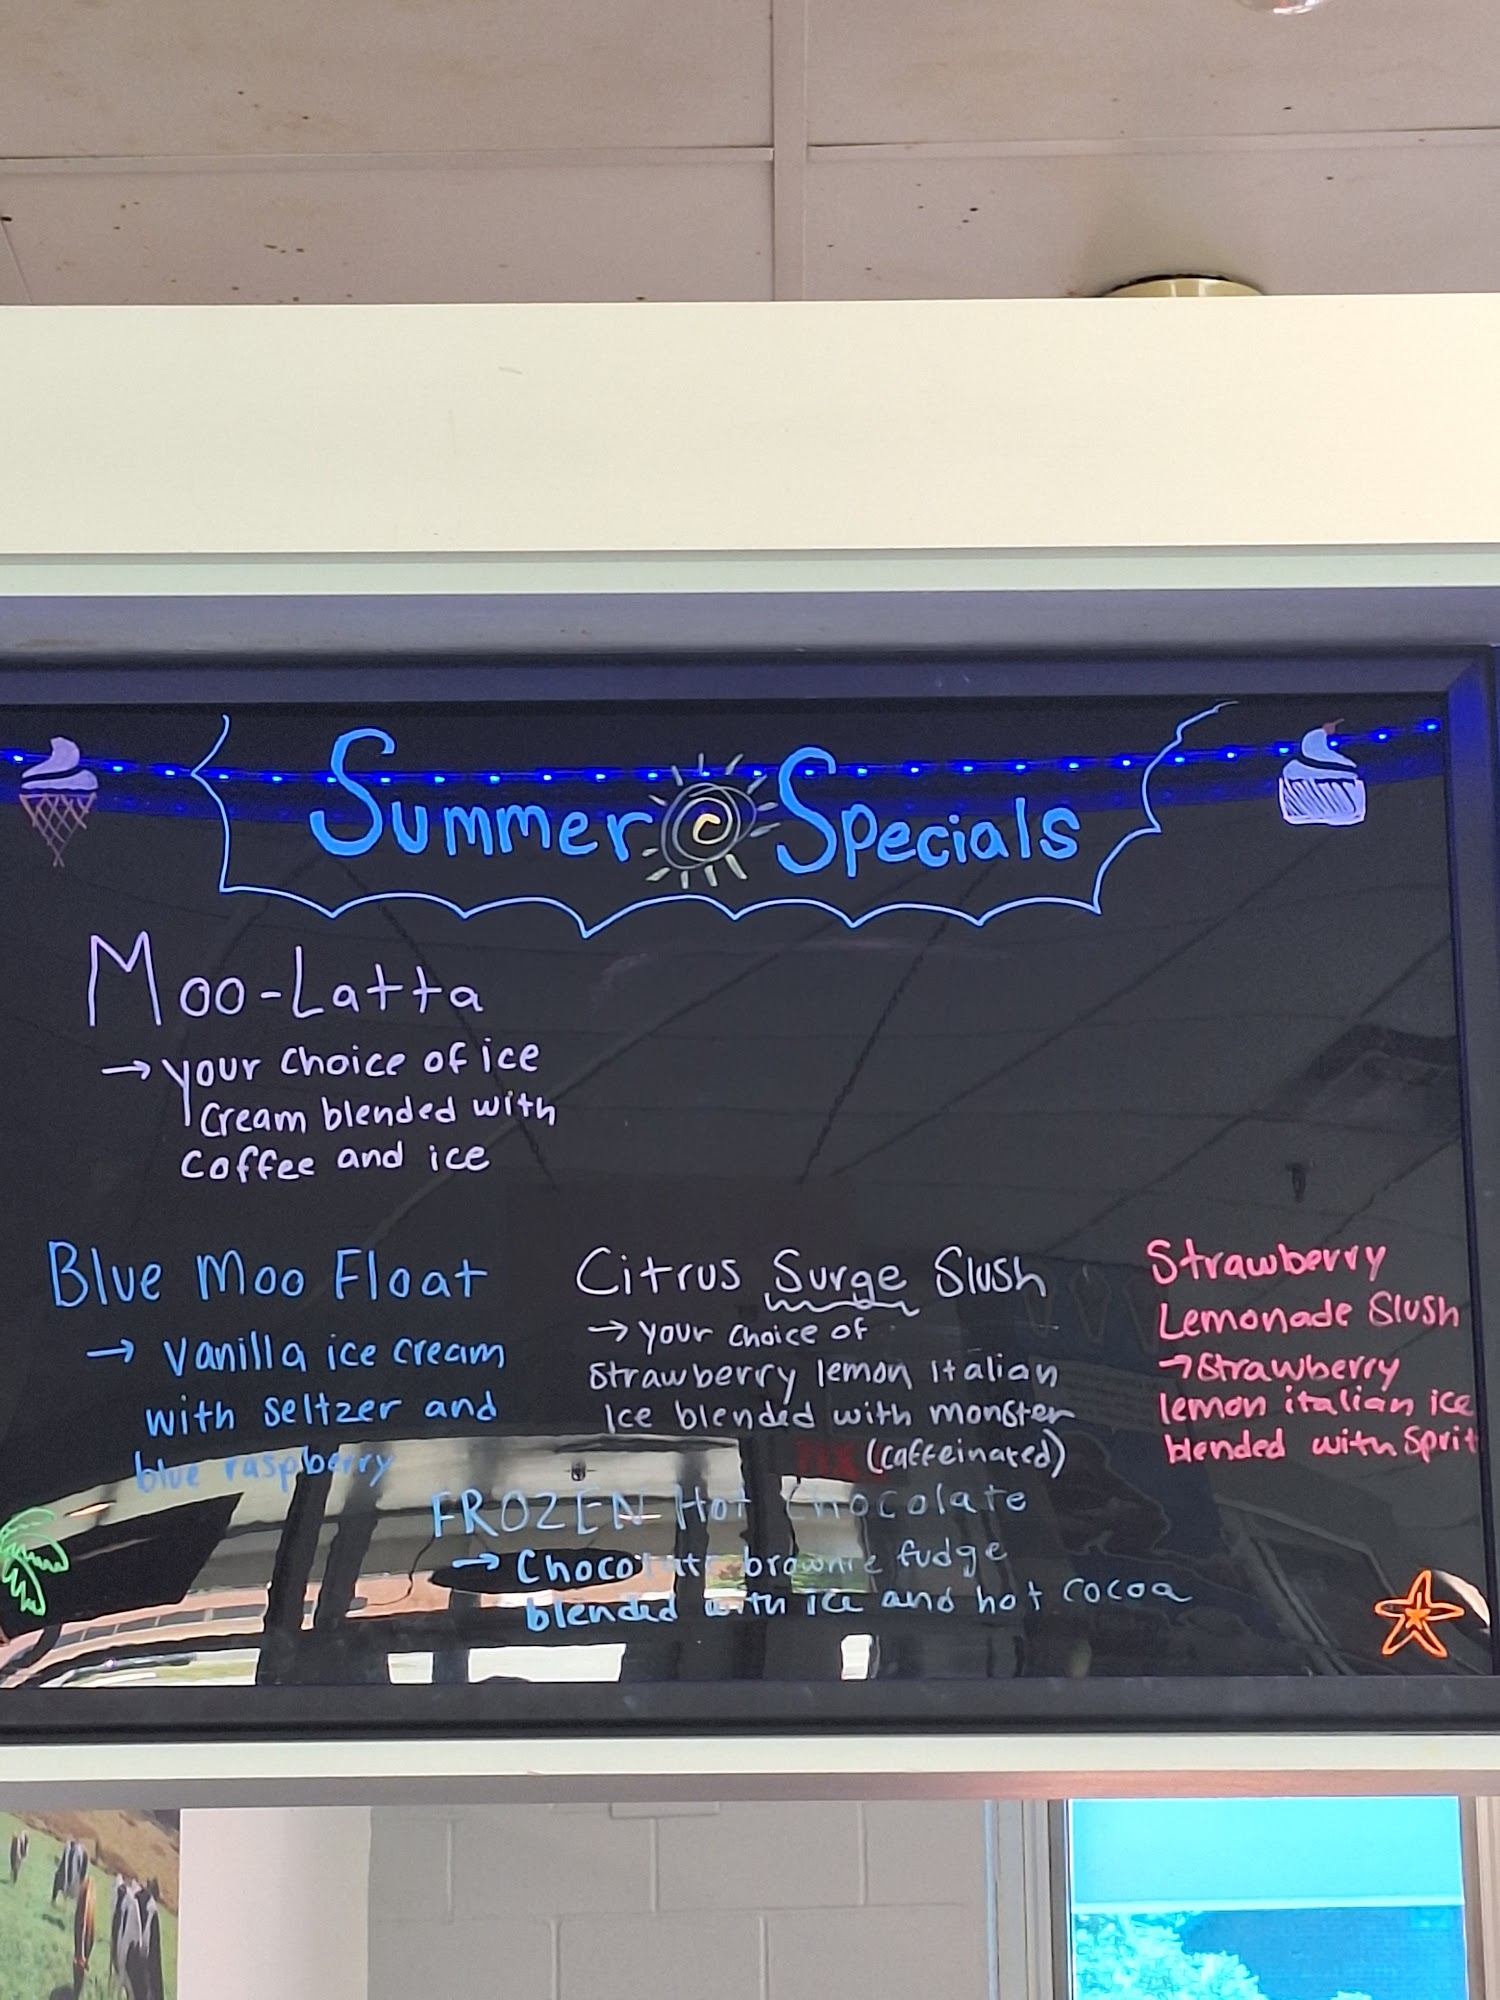 Summer Specials
Moo-Latta
→ your choice of ice
cream blended with
coffee and ice
Blue Moo Float
→ Vanilla ice cream
with seltzer and
blue raspberry
Citrus Surge Slush
→ your choice of
Strawberry lemon italian
Ice blended with monster
(caffeinated)
Strawberry
Lemonade Slush
→ Strawberry
lemon italian ice
blended with Sprit
FROZEN Hot Chocolate
→ Chocolate brownie fudge
blended with ice and hot cocoa